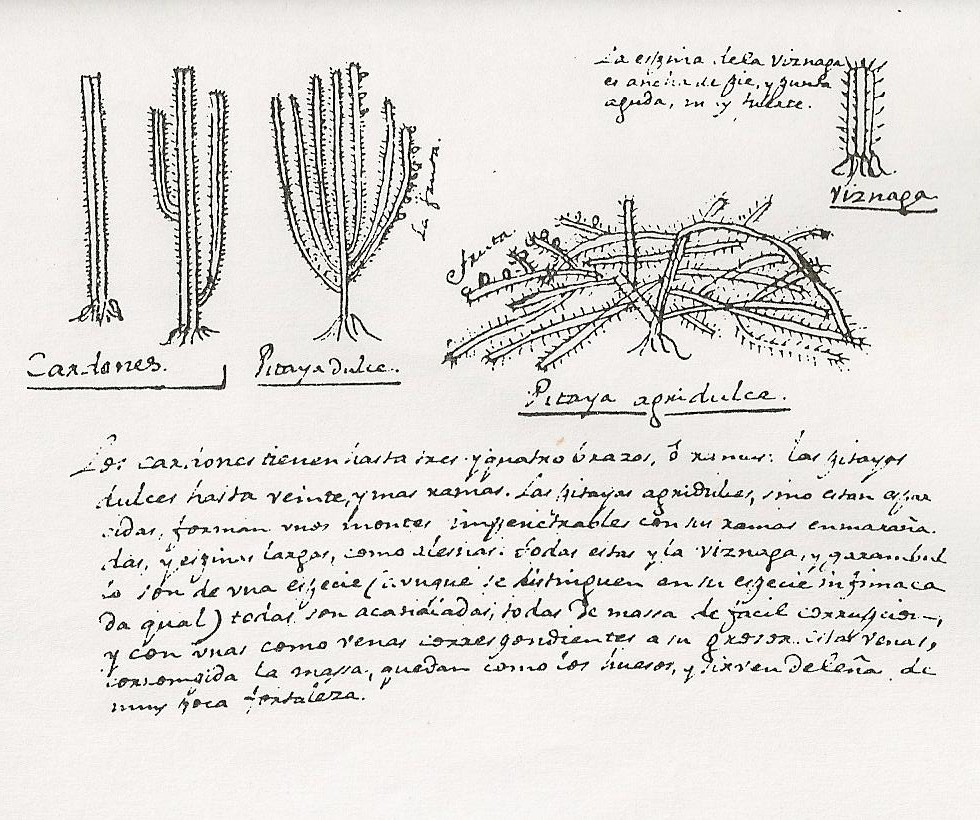 La espina de la Viznaga
es ancha de pie, y punta
aguda, muy fuerte.
Viznaga
La fruta.
fruta.
Cardones.
Pitaya dulce.
Pitaya agridulce.
Los cardones tienen hasta tres y quatro brazos, ô ramas: las pitayas
dulces hasta veinte, y mas ramas. Las pitayas agridulces, sino estan
forman unos montes impenetrables con su ramas enmaraña
das, y espinas largas, como alesnas: todas estas y la viznaga, y garambul
lo son de vna especie (aunque se distinguen en su especie infima ca
da qual) todas son acanaladas, todas de massa de facil corrupcion,
y con vnas como venas correspondientes a su grosor. estas venas,
la massa, quedan como los huesos, y sirven de leña, de
muy poca fortaleza.